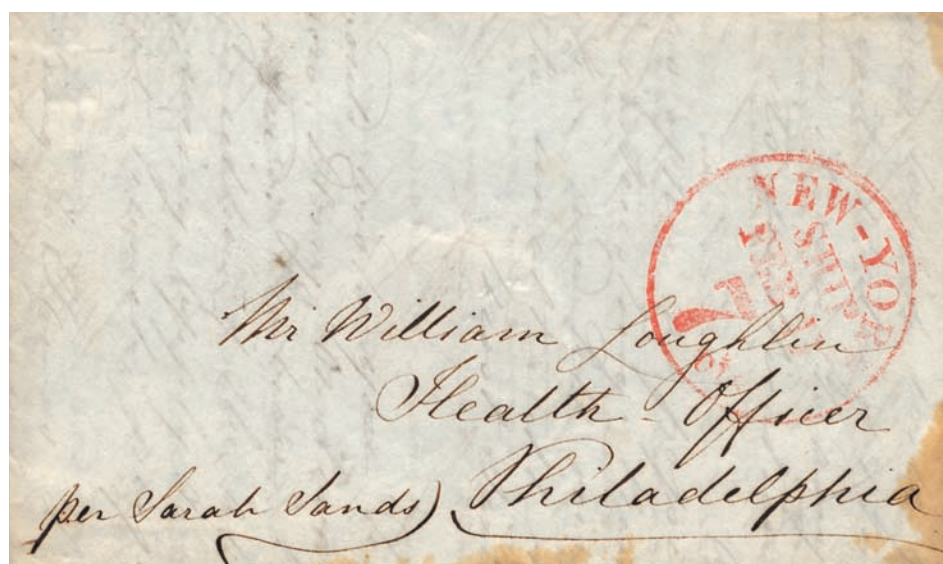 NEW-YORK
SHIP
7
Mr William Loughlin
Health-Officer
Philadelphia
per Sarah Sands)